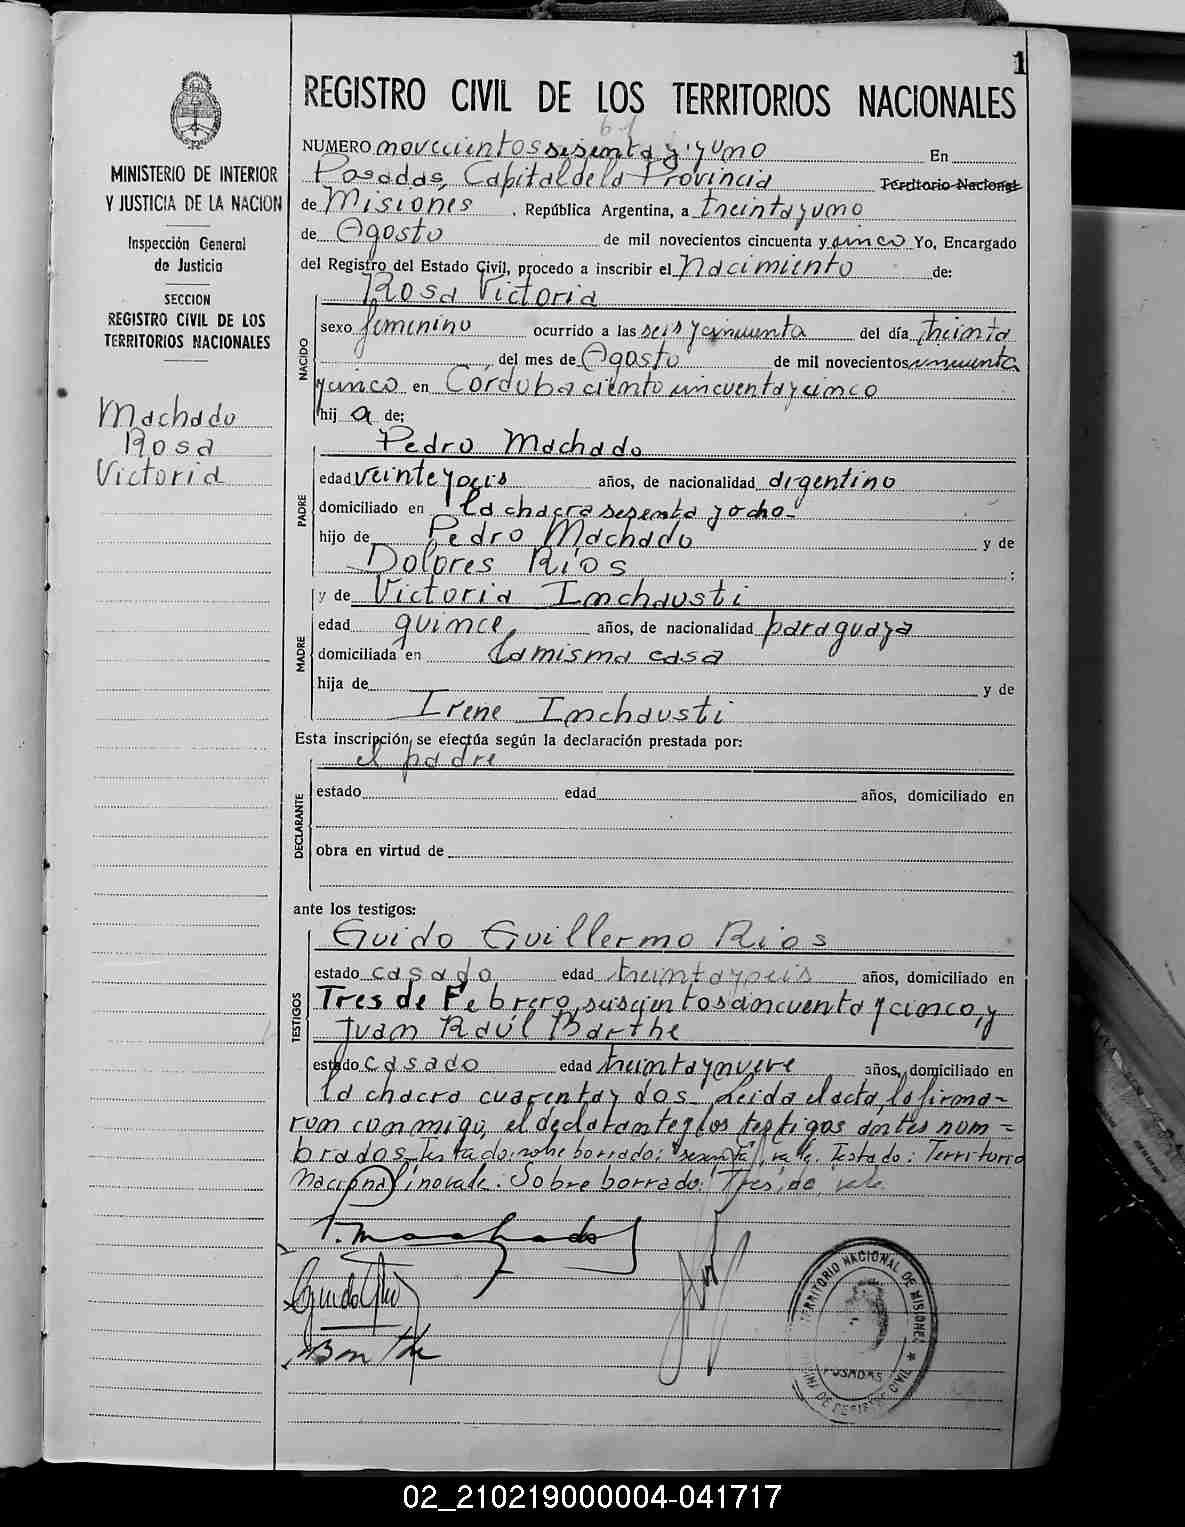 1
REGISTRO CIVIL DE LOS TERRITORIOS NACIONALES
MINISTERIO DE INTERIOR
Y JUSTICIA DE LA NACION
Inspección General
de Justicia
SECCION
REGISTRO CIVIL DE LOS
TERRITORIOS NACIONALES
Machado
Rosa
Victoria
61
NUMERO novecientos sesenta y uno En
Posadas, Capital de la Provincia Territorio Nacional
de Misiones, República Argentina, a treinta y uno
de Agosto de mil novecientos cincuenta y cinco Yo, Encargado
del Registro del Estado Civil, procedo a inscribir el Nacimiento de:
NACIDO
Rosa Victoria
sexo femenino ocurrido a las seis y cincuenta del día treinta
del mes de Agosto de mil novecientos cincuenta
y cinco en Córdoba ciento cincuenta y cinco
hij a de:
PADRE
Pedro Machado
edad veinte y seis años, de nacionalidad argentino
domiciliado en la chacra sesenta y ocho-
hijo de Pedro Machado y de
Dolores Ríos ;
MADRE
y de Victoria Inchausti
edad quince, años, de nacionalidad paraguaya
domiciliada en la misma casa
hija de y de
Irene Inchausti
Esta inscripción se efectúa según la declaración prestada por:
el padre
DECLARANTE
estado edad años, domiciliado en
obra en virtud de
ante los testigos:
TESTIGOS
Guido Guillermo Rios
estado casado edad treinta y seis años, domiciliado en
Tres de Febrero, seiscientos cincuenta y cinco, y
Juan Raúl Barthe
estado casado edad treinta y nueve años, domiciliado en
la chacra cuarenta y dos. Leida el acta, la firma-
ron conmigo, el declarante y los testigos antes nom=
brados. Testado: sobre borrado: "sesenta", vale. Testado: Territorio
Nacional, no vale. Sobre borrado: Tres, de, vale.
P. Machado
Guido Rios
Barthe
TERRITORIO NACIONAL DE MISIONES
POSADAS
DE REGISTRO CIVIL
02_210219000004-041717